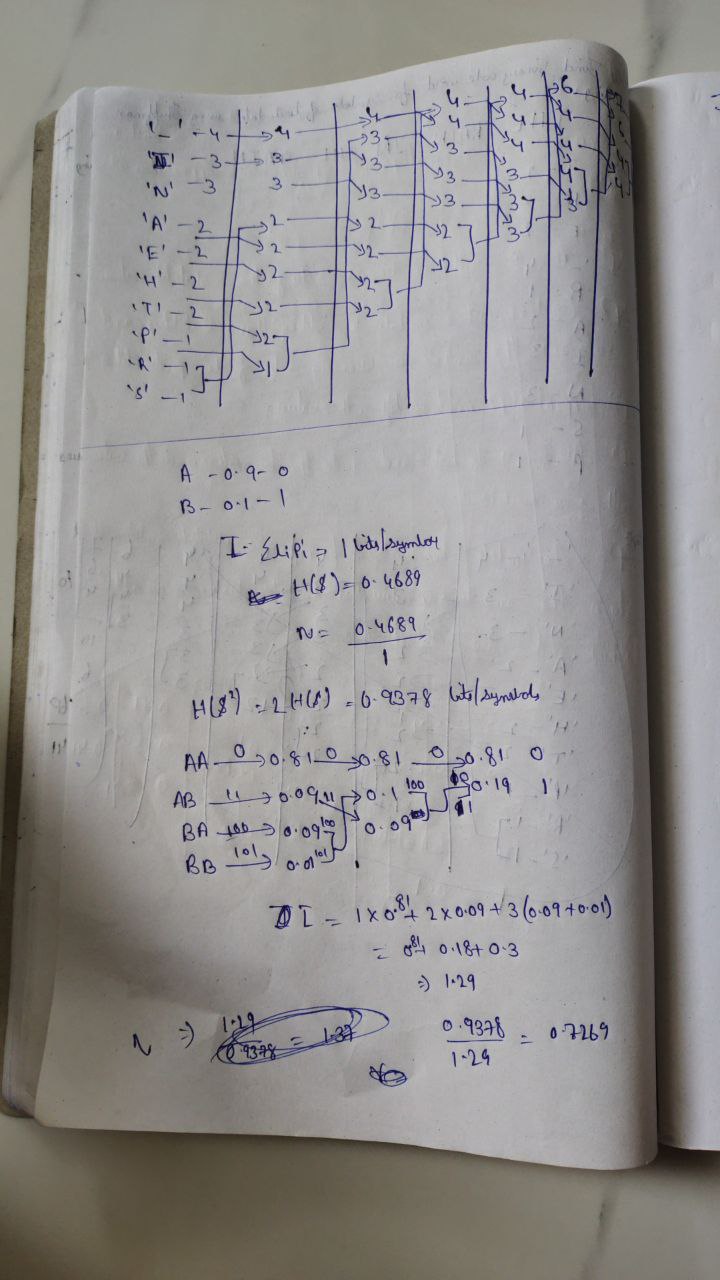 '_' - 4 → 4 → 4 → 4 → 4 → 4 → 6 → 7
'I' - 3 → 3 → 3 → 4 → 4 → 4
'N' - 3 3 → 3 → 3 → 4 → 4
'A' - 2 → 2 → 3 → 3 → 3
'E' - 2 → 2 → 2 → 3 → 3 → 3
'H' - 2 → 2 → 2 → 2 → 3
'T' - 2 → 2 → 2 → 2
'P' - 1 → 2 → 2
'R' - 1 → 1
'S' - 1
A - 0.9 - 0
B - 0.1 - 1
I = Σlipi = 1 bits/symbol
H(S) = 0.4689
N = 0.4689
1
H(S²) = 2 H(S) = 0.9378 bits/symbols
AA 0 → 0.81 0 → 0.81 0 → 0.81 0
AB 11 → 0.09 11 → 0.1 100 0.19 1
BA 100 → 0.09 100 0.09 11
BB 101 → 0.01 101
I = 1×0.81 + 2×0.09 + 3(0.09+0.01)
= 0.81 + 0.18 + 0.3
⇒ 1.29
N ⇒ 1.29 / 0.9378 = 1.37
0.9378 / 1.29 = 0.7269